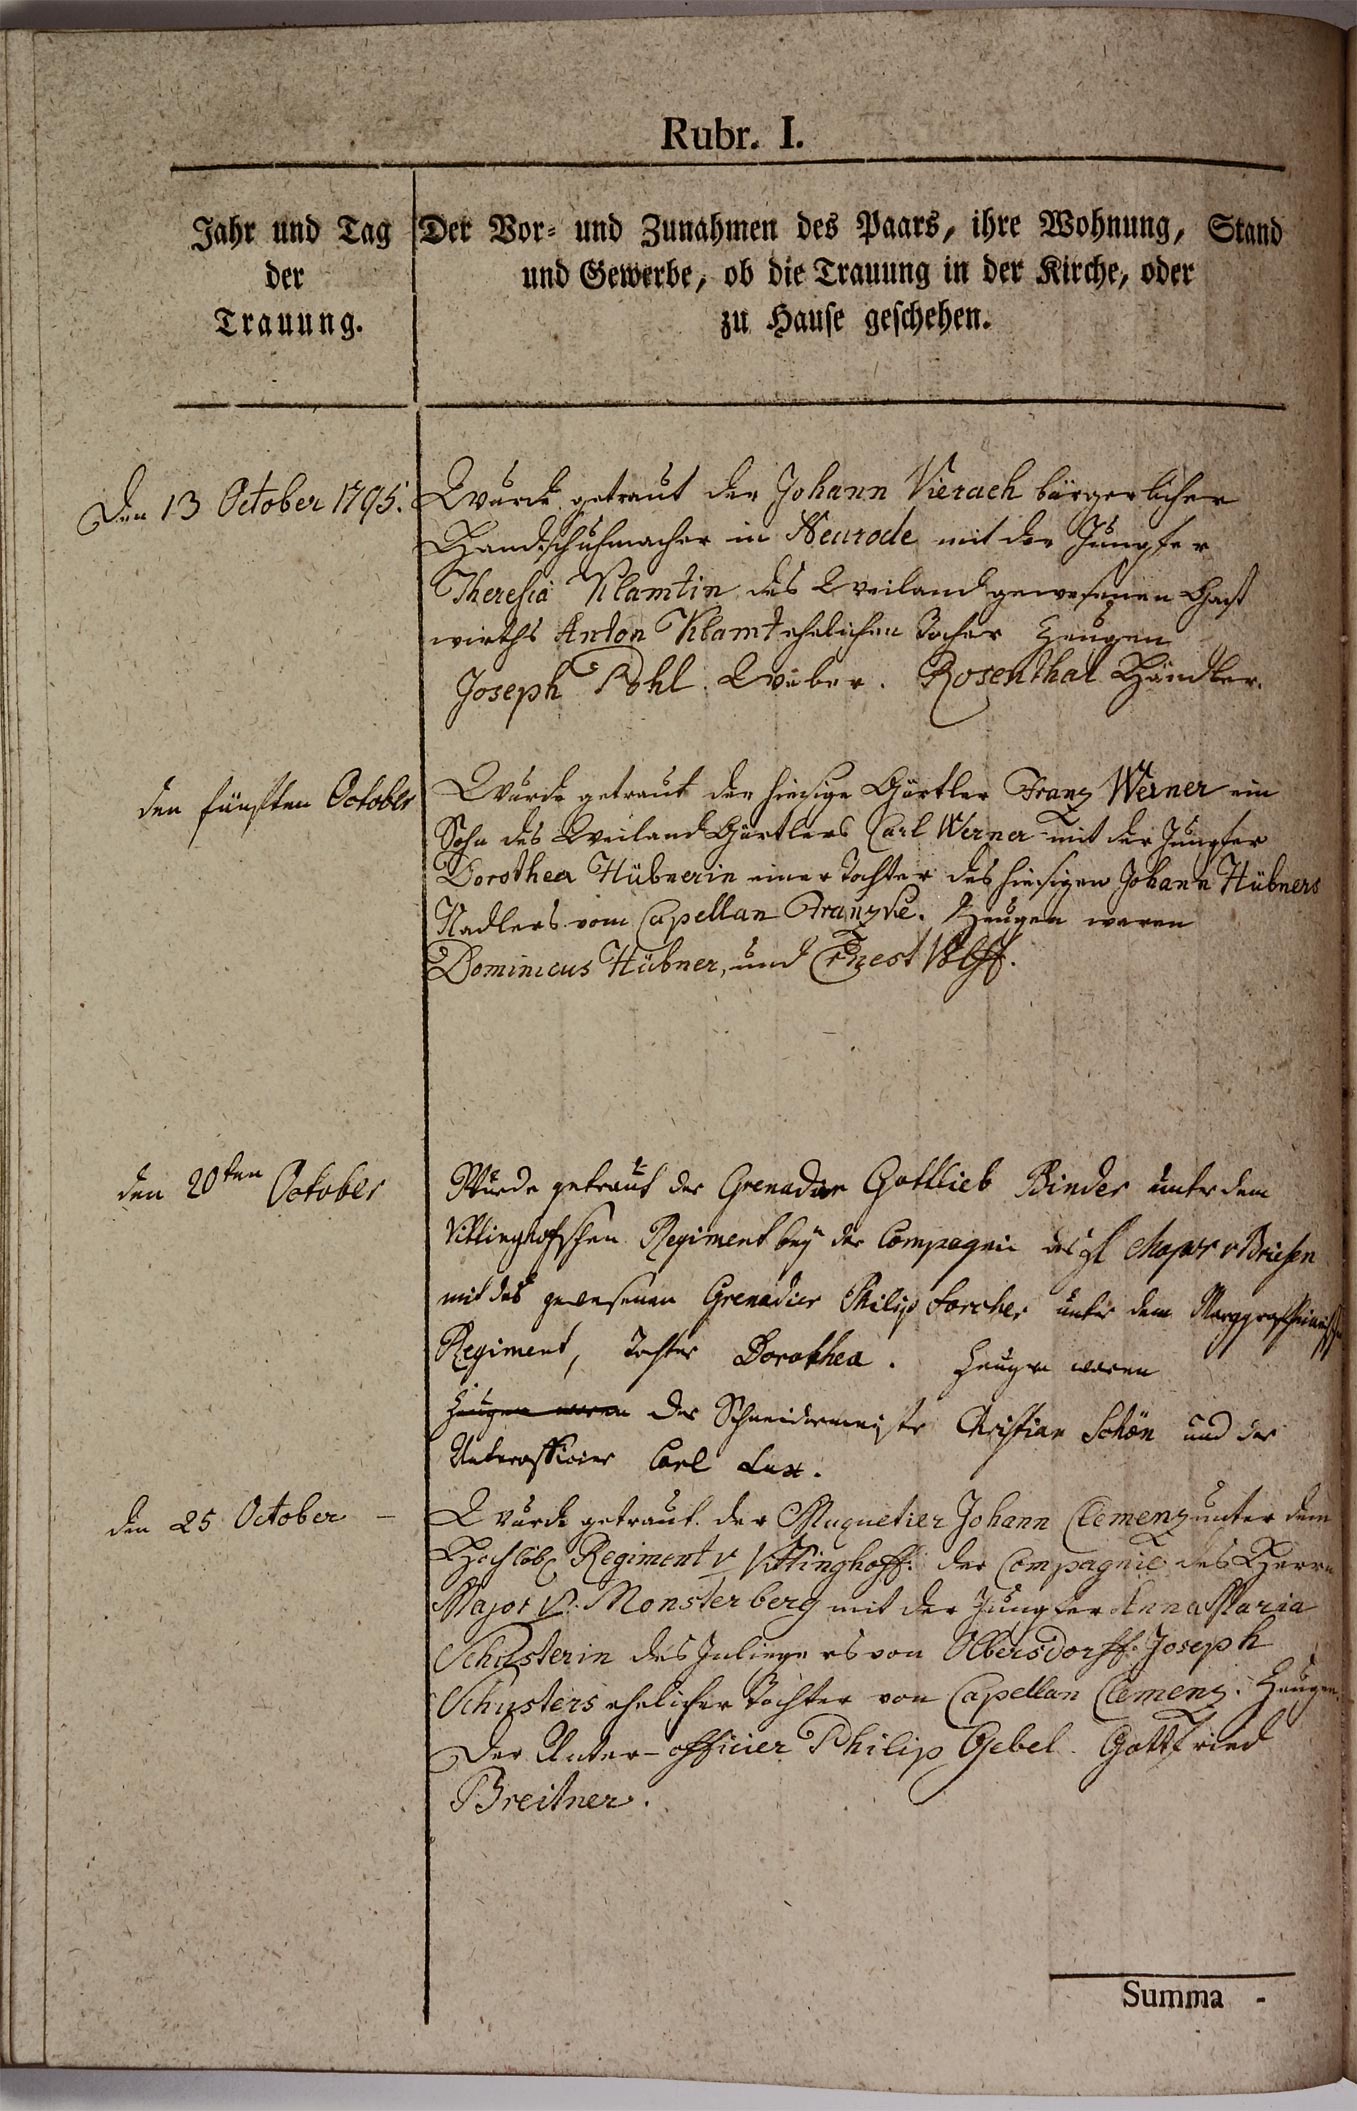 Rubr. I.
Jahr und Tag
der
Trauung.
Der Vor- und Zunahmen des Paars, ihre Wohnung, Stand
und Gewerbe, ob die Trauung in der Kirche, oder
zu Hause geschehen.
Den 13 October 1795.
Wurde getraut der Johann Vierach bürgerlicher
Handschuhmacher in Neurode mit der Jungfer
Theresia Klamtin des Weiland gewesenen Gast
wirths Anton Klamt ehelichen Tocher Zeugen
Joseph Pohl. Weber. Rosenthal Händler.
den fünften October
Wurde getraut der hiesige Gürtler Franz Werner ein
Sohn des Weiland Gürtlers Carl Werner mit der Jungfer
Dorothea Hübnerin einer Tochter des hiesigen Johann Hübners
Nadlers vom Capellan Franzke. Zeugen waren
Dominicus Hübner, und Ernest Wolff.
den 20ten October
Wurde getraut der Grenadier Gottlieb Binder unter dem
Vittinghofschen Regiment bey der Compagnie des H Major v Briesen
mit des gewesenen Grenadier Philip Lorcher unter dem
Regiment, Tochter Dorothea. Zeugen waren
Zeugen waren der Schneidermeister Christian Schön und der
Unterofficier Carl Lux.
den 25 October –
Wurde getraut der Muquetier Johann Clemenz unter dem
Hochlöbl Regiment v Vittinghoff: der Compagnie des Herrn
Major v. Monsterberg mit der Jungfer Anna Maria
Schusterin des Inliegers von Olbersdorff: Joseph
Schusters ehelicher Tochter von Capellan Clemenz. Zeugen.
Der Unter-officier Philip Gebel. Gottfried
Breitner.
Summa -